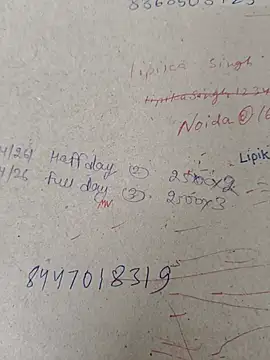 8368503123
lipika Singh
lipikasingh1234
Noida @ 16
4/26/ Half day (2) 2500x2
4/26 full day (3). 2500x3
Lipik
MV
8447018319